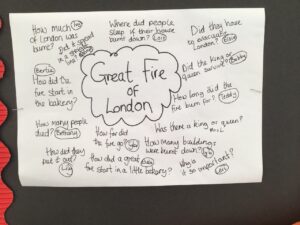 How much
of London was
burnt?
Did it spread
in a
Where did people
sleep if their house
burnt down?
Did they have
to evacuate
London?
Bertie
How did the
fire start in
the bakery?
Great Fire
of
London
Did the king or
queen survive?
Bobby
How long did the
fire burn for?
Teddy
How many people
died?
Bethany
How far did
the fire go?
Was there a king or queen?
How did they
put it out?
How did a great
fire start in a little bakery?
How many buildings
were burnt down?
Why is
it so important?